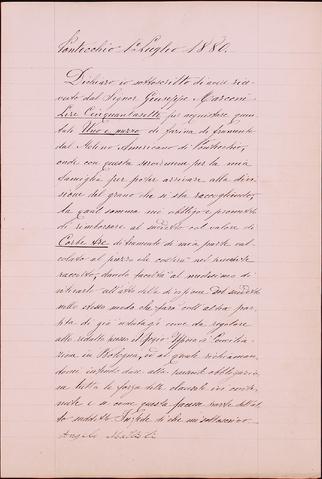 Pontecchio 1º Luglio 1880.
Dichiaro io sottoscritto di avere rice-
vuto dal Signor Giuseppe Marconi
Lire Cinquantasette per acquistare quin-
tale Uno e mezzo di farina di frumento
dal Molino Americano di Pontecchio,
onde con questa servirmene per la mia
famiglia per poter arrivare alla divi-
sione del grano che si sta raccogliendo,
la qual somma mi obbligo e prometto
di rimborsare al medesimo col valore di
Corbe tre di frumento di mia parte cal-
colato al prezzo che correrà nel presente
raccolto, dando facoltà al medesimo di
ritirarlo all'atto della divisione del medesimo
nello stesso modo che farà coll'altra par-
tita di già
alle
zione in Bologna, ed al quale
dare alla presente obbligazio-
ne tutta la forza delle clausole ivi conte-
nute e come questa facesse parte dell'at-
to suddetto. In fede di che mi sottoscrivo
Angelo